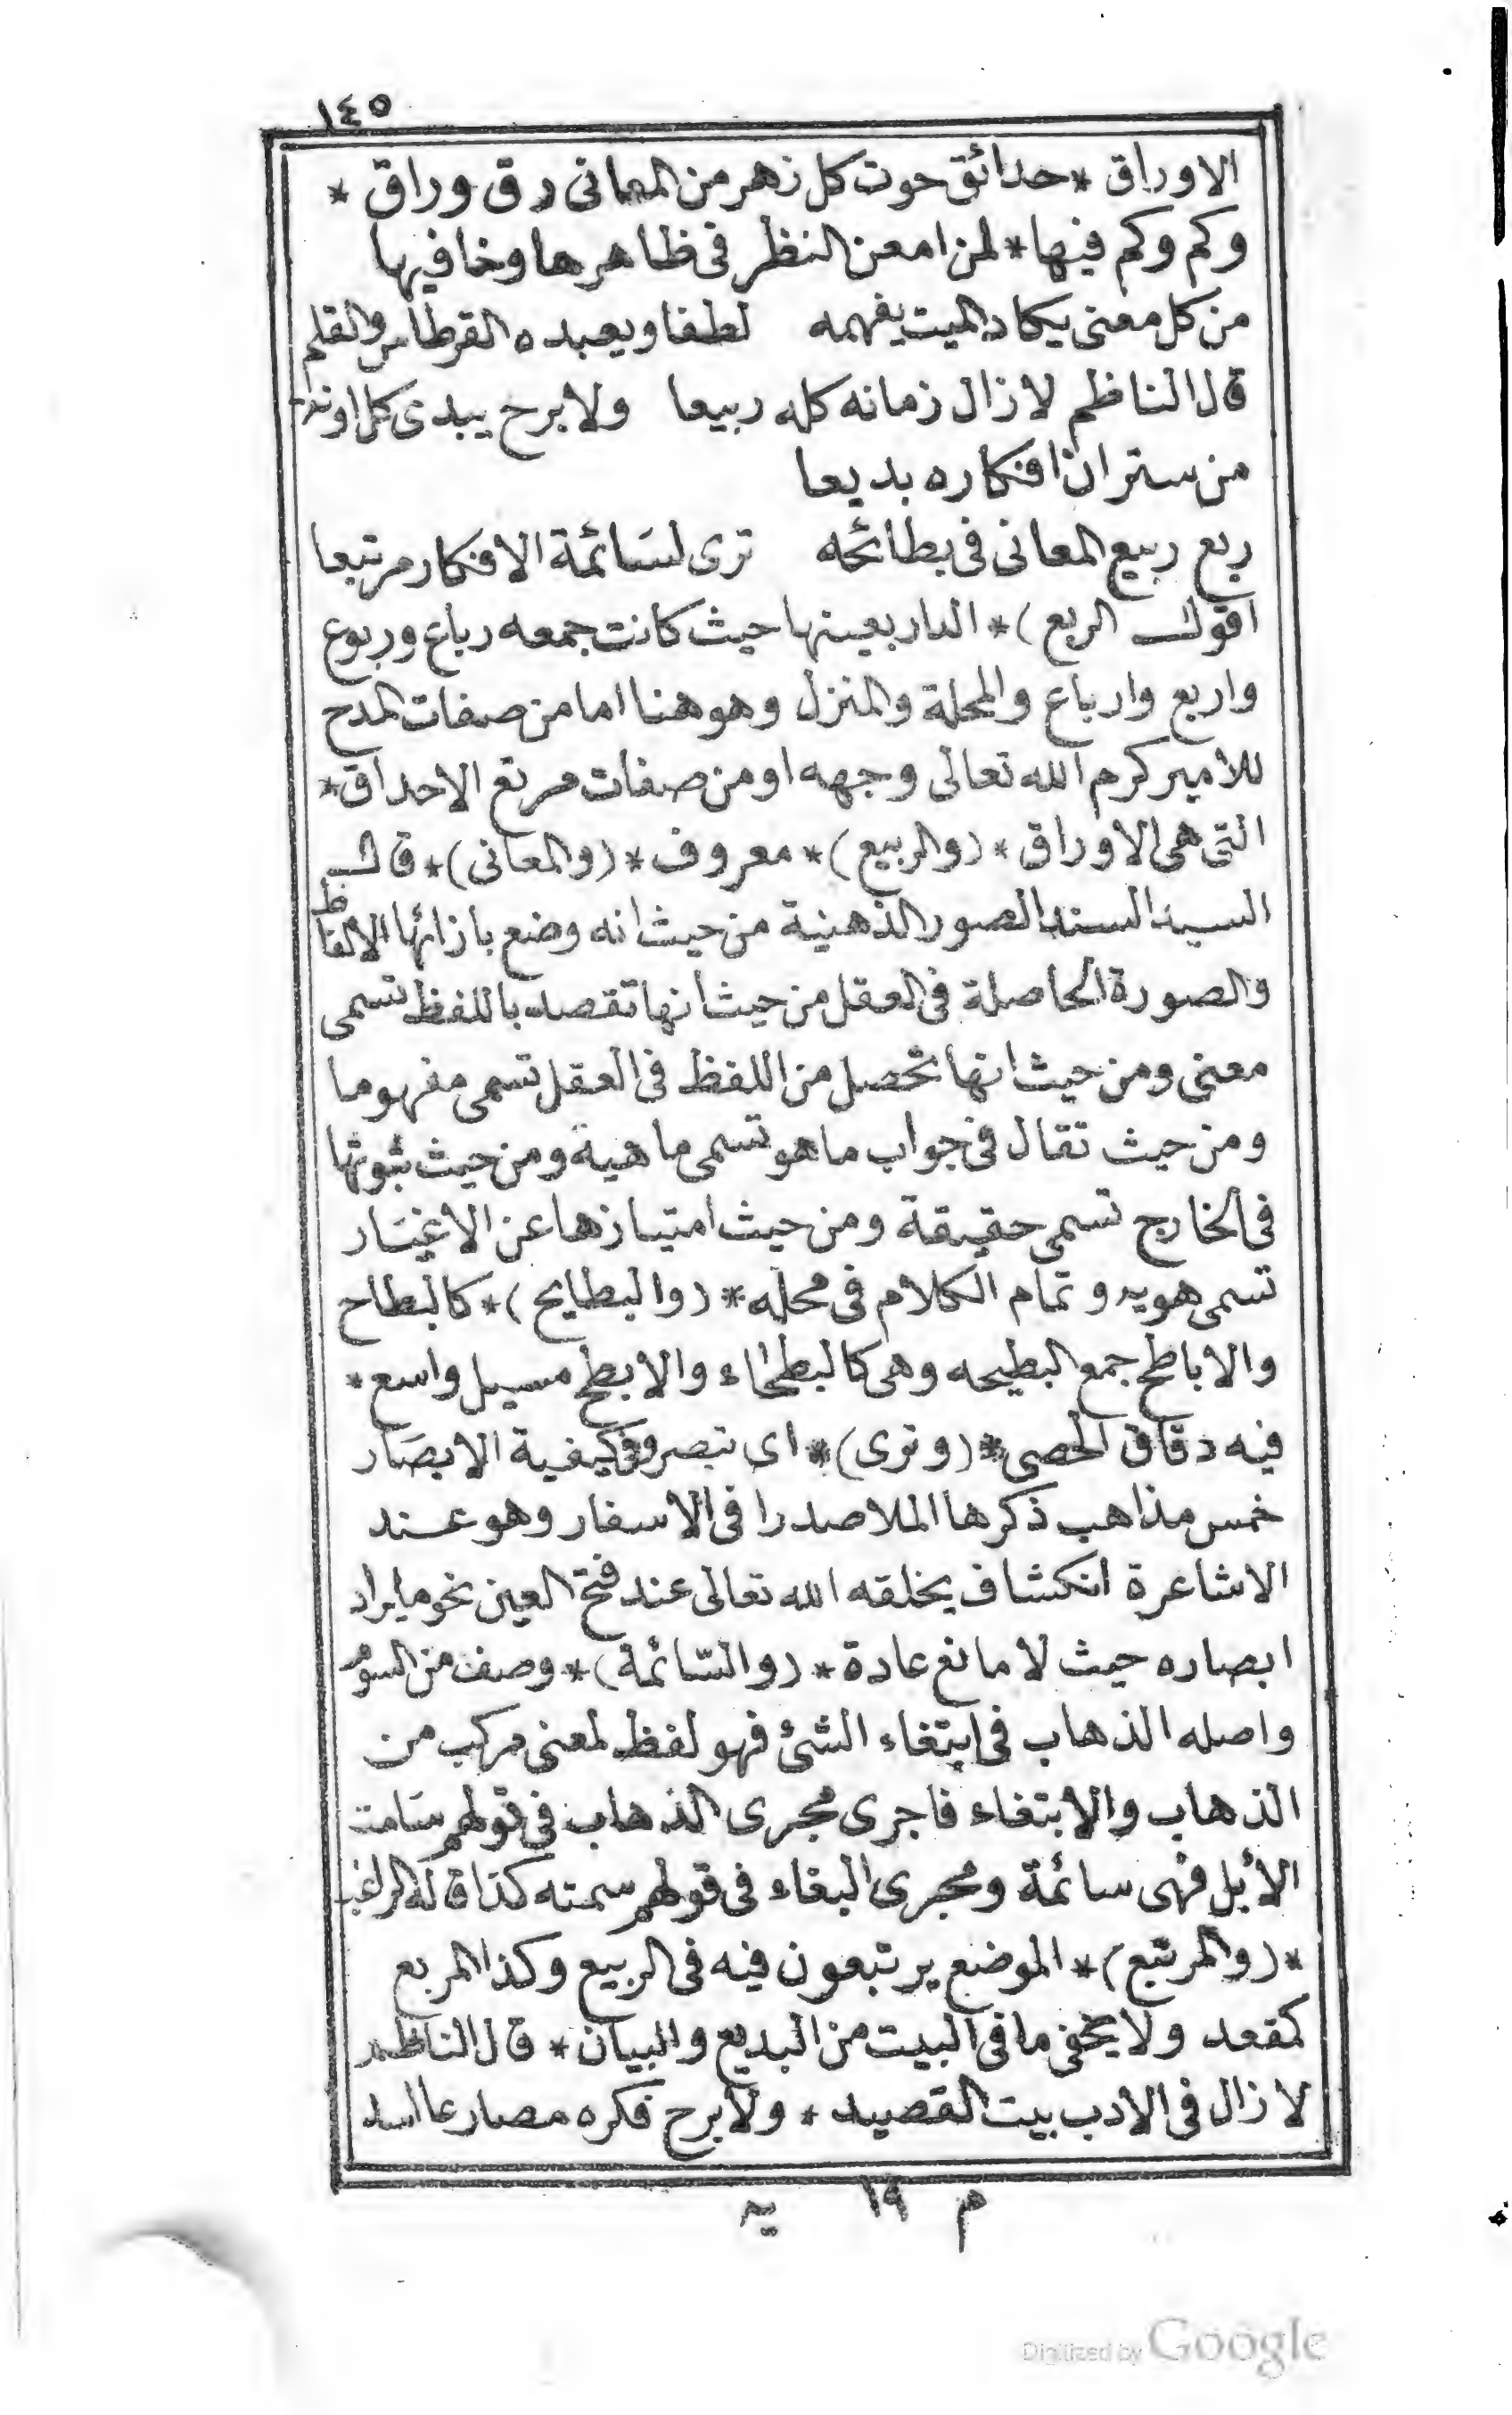 ١٤٥
الاوراق * حدائق حوت كل زهر من المعانى رق وراق *
وكم وكم فيها * لمن امعن النظر فى ظاهرها وخافيها
من كل معنى يكاد الميت يفهمه لطفا ويعبده القرطاس والقلم
قال الناظم لا زال زمانه كله ربيعا ولا برح يبدى كل اونة
من ستر ان افكاره بديعا
ربع ربيع المعانى فى بطائحه ترى لسَائمة الافكار مرتبعا
اقول الربع ) * الدار بعينها حيث كانت جمعه رباع وربوع
واربع وارباع والمحلة والمنزل وهو هنا اما من صفات المدح
للامير كرم الله تعالى وجهه او من صفات مرتع الاحداق *
التى هى الاوراق * (والربيع) * معروف * (والمعانى) * قال
السيد السند الصور الذهنية من حيث انه وضع بازائها الالفاظ
والصورة الحاصلة فى العقل من حيث انها تقصد باللفظ تسمى
معنى ومن حيث انها تحصل من اللفظ فى العقل تسمى مفهوما
ومن حيث تقال فى جواب ما هو تسمى ماهية ومن حيث ثبوتها
فى الخارج تسمى حقيقة ومن حيث امتيازها عن الاغيَار
تسمى هويه وتمام الكلام فى محله * (والبطايح) * كالبطاح
والاباطح جمع البطيحه وهى كالبطحاء والابطح مسيل واسع *
فيه دقاق الحصى * (وترى) * اى تبصر وفى كيفية الابصَار
خمس مذاهب ذكرها الملا صدرا فى الاسفار وهو عند
الاشاعرة انكشاف يخلقه الله تعالى عند فتح العين نحو ما يراد
ابصاره حيث لا مانع عادة * (والسّائمة) * وصف من السوم
واصله الذهاب فى ابتغاء الشئ فهو لفظ لمعنى مركب من
الذهاب والابتغاء فاجرى مجرى الذهاب فى قولهم سَامت
الأبل فهى سائمة ومجرى البغاء فى قولهم سمته كذا قاله الراغب
* (والمرتبع) * الموضع يرتبعون فيه فى الربيع وكذا المربع
كمقعد ولا يخفى ما فى البيت من البديع والبيان * قال الناظم
لا زال فى الادب بيت القصيد * ولا برح فكره مصارعا اسد
م ١٩ يه
Digitized by Google